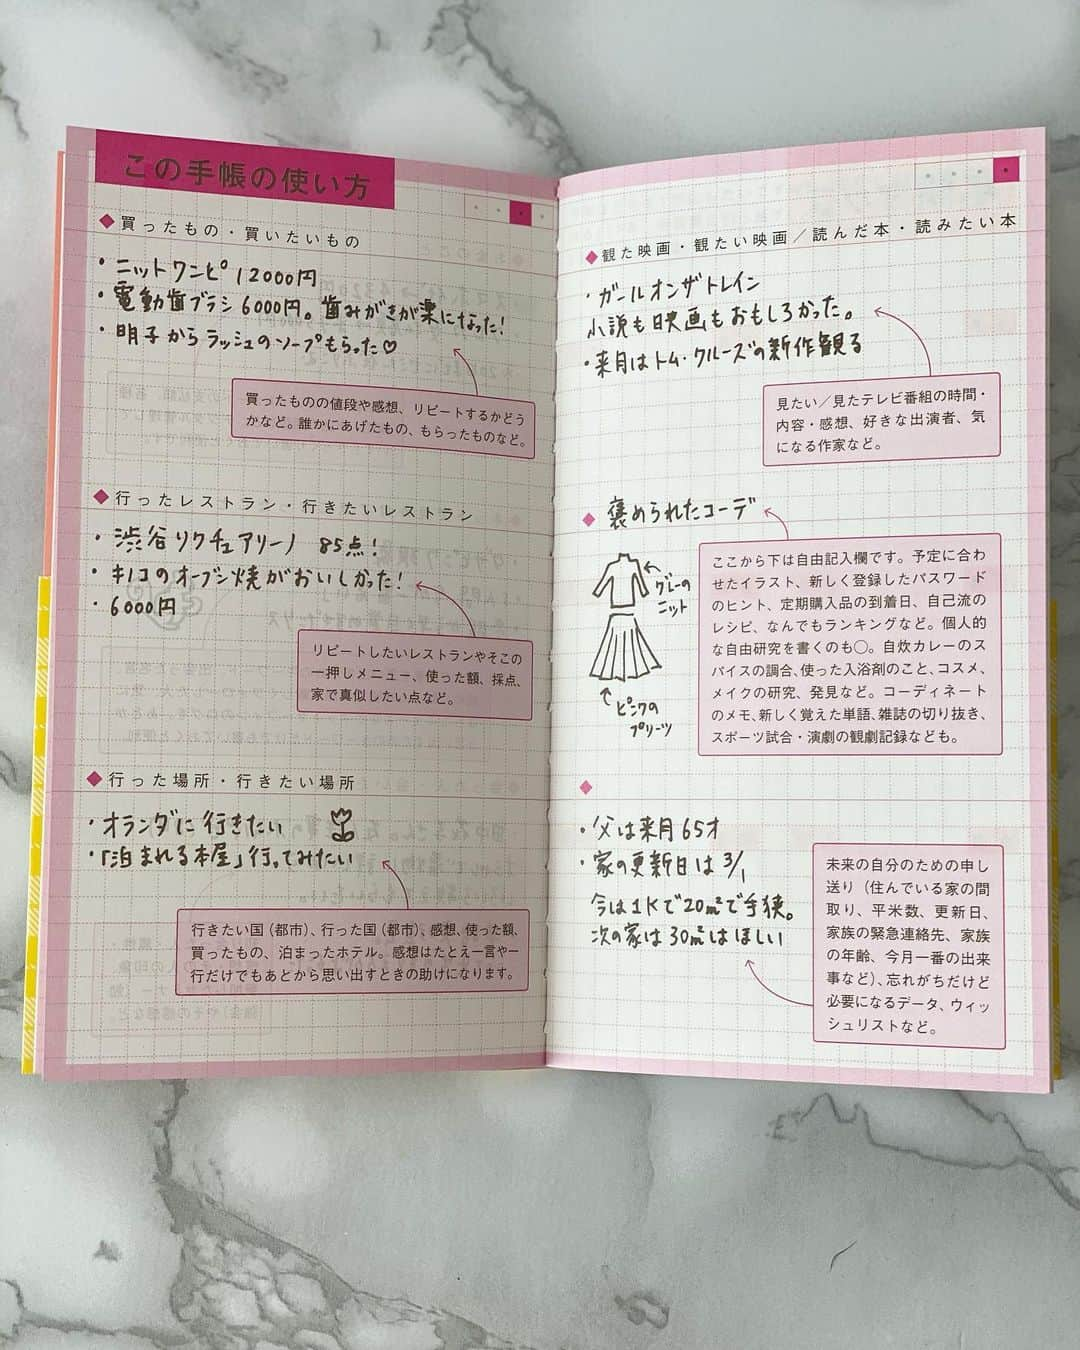 この手帳の使い方
◆買ったもの・買いたいもの
・ニットワンピ 12000円
・電動歯ブラシ 6000円。歯みがきが楽になった!
・明子からラッシュのソープもらった♡
買ったものの値段や感想、リピートするかどう
かなど。誰かにあげたもの、もらったものなど。
◆行ったレストラン・行きたいレストラン
・渋谷リクチュアリーノ 85点!
・キノコのオーブン焼がおいしかった!
・6000円
リピートしたいレストランやそこの
一押しメニュー、使った額、採点、
家で真似したい点など。
◆行った場所・行きたい場所
・オランダに行きたい
・「泊まれる本屋」行ってみたい
行きたい国(都市)、行った国(都市)、感想、使った額、
買ったもの、泊まったホテル。感想はたとえ一言や一
行だけでもあとから思い出すときの助けになります。
◆観た映画・観たい映画/読んだ本・読みたい本
・ガールオンザトレイン
小説も映画もおもしろかった。
・来月はトム・クルーズの新作観る
見たい/見たテレビ番組の時間・
内容・感想、好きな出演者、気
になる作家など。
◆褒められたコーデ
グレーの
ニット
ピンクの
プリーツ
ここから下は自由記入欄です。予定に合わ
せたイラスト、新しく登録したパスワード
のヒント、定期購入品の到着日、自己流の
レシピ、なんでもランキングなど。個人的
な自由研究を書くのも◯。自炊カレーのス
パイスの調合、使った入浴剤のこと、コスメ、
メイクの研究、発見など。コーディネート
のメモ、新しく覚えた単語、雑誌の切り抜き、
スポーツ試合・演劇の観劇記録なども。
◆
・父は来月65才
・家の更新日は3/1
今は1Kで20㎡で手狭。
次の家は30㎡はほしい
未来の自分のための申し
送り(住んでいる家の間
取り、平米数、更新日、
家族の緊急連絡先、家族
の年齢、今月一番の出来
事など)、忘れがちだけど
必要になるデータ、ウィッ
シュリストなど。